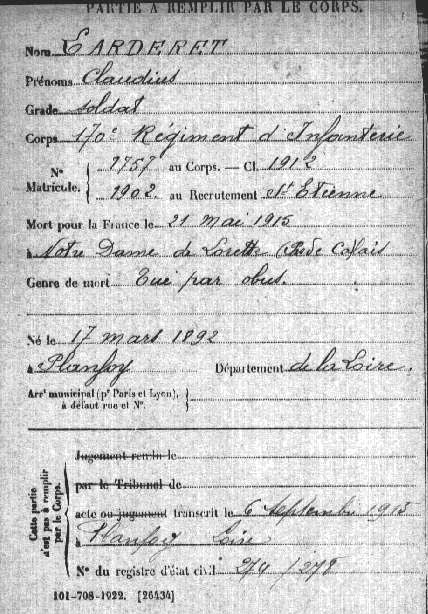 PARTIE A REMPLIR PAR LE CORPS.
Nom EARDERET
Prénoms Claudius
Grade soldat
Corps 170e Régiment d'Infanterie
N° Matricule. { 2757 au Corps. — Cl. 1912
1902 au Recrutement St Etienne
Mort pour la France le 21 mai 1915
à Notre Dame de Lorette (Pas de Calais
Genre de mort Tué par obus.
Né le 17 mars 1892
à Planfoy Département de la Loire.
Arrt municipal (pr Paris et Lyon), à défaut rue et N°. {
Cette partie n'est pas à remplir par le Corps. {
Jugement rendu le
par le Tribunal de
acte ou jugement transcrit le 6 Septembre 1915
à Planfoy Loire
N° du registre d'état civil 274 / 278
101-708-1922. [26434]